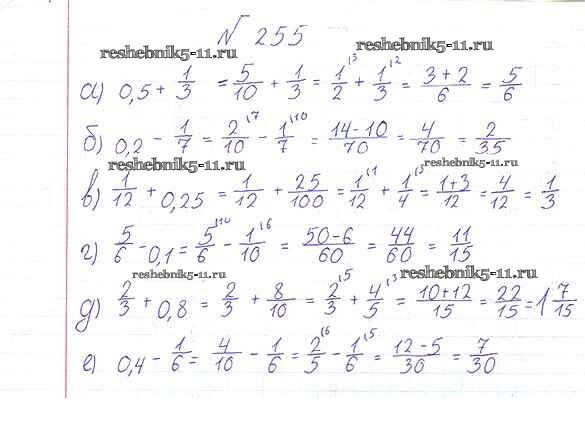 √ 255
reshebnik5-11.ru reshebnik5-11.ru
а) 0,5 + 1/3 = 5/10 + 1/3 = 1/2^(3 + 1/3^(2 = (3+2)/6 = 5/6
б) 0,2 - 1/7 = 2/10^(7 - 1/7^(10 = (14-10)/70 = 4/70 = 2/35
reshebnik5-11.ru reshebnik5-11.ru
в) 1/12 + 0,25 = 1/12 + 25/100 = 1/12^(1 + 1/4^(3 = (1+3)/12 = 4/12 = 1/3
г) 5/6 - 0,1 = 5/6^(10 - 1/10^(6 = (50-6)/60 = 44/60 = 11/15
reshebnik5-11.ru reshebnik5-11.ru
д) 2/3 + 0,8 = 2/3 + 8/10 = 2/3^(5 + 4/5^(3 = (10+12)/15 = 22/15 = 1 7/15
е) 0,4 - 1/6 = 4/10 - 1/6 = 2/5^(6 - 1/6^(5 = (12-5)/30 = 7/30